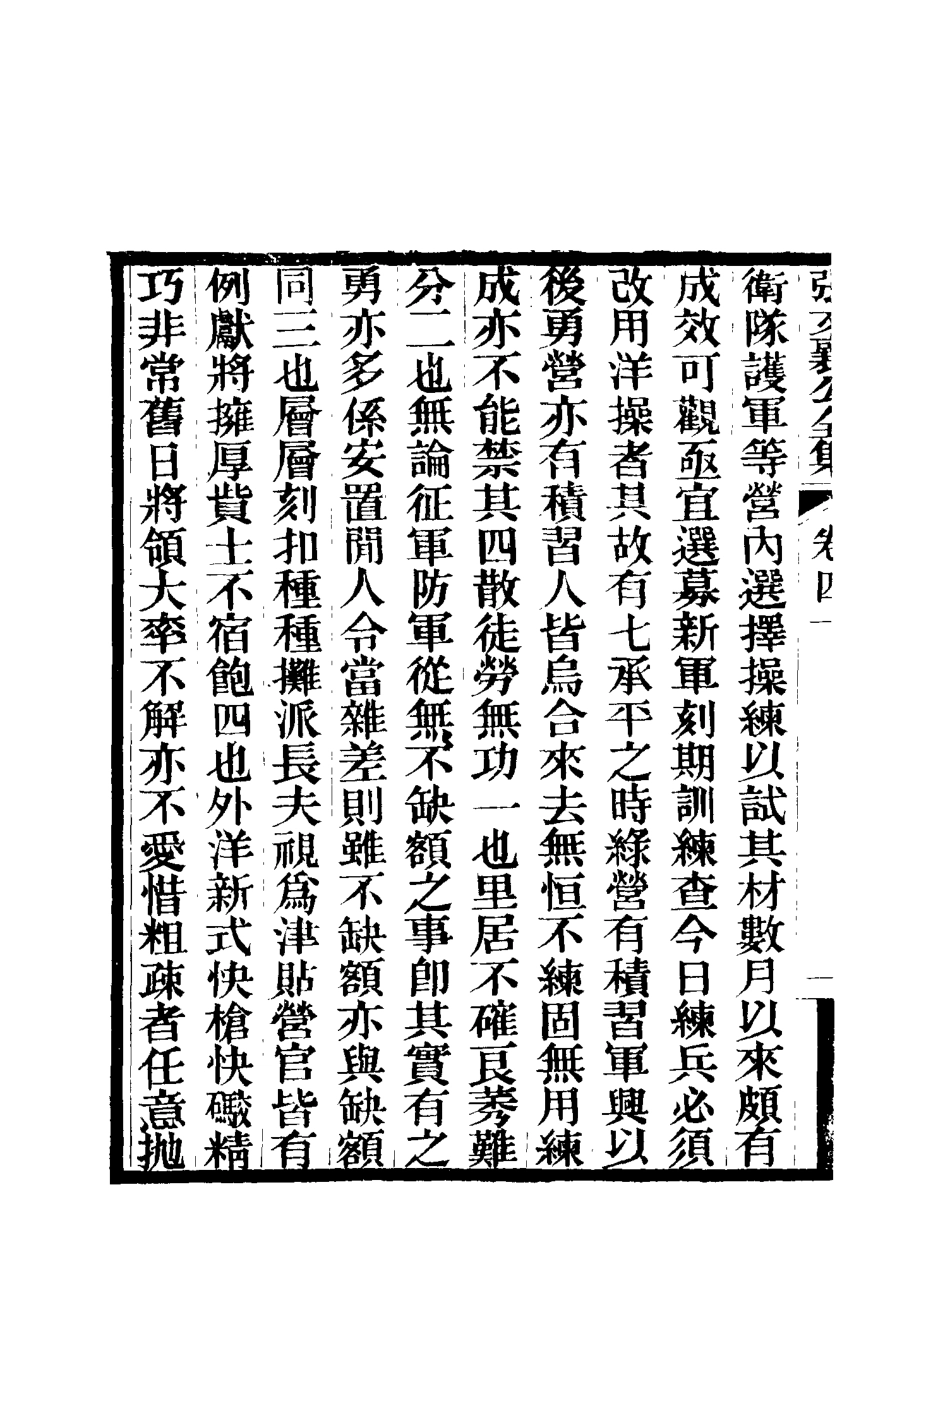 張文襄公全集 卷四
衛隊護軍等營內選擇操練以試其材數月以來頗有
成效可觀亟宜選募新軍刻期訓練查今日練兵必須
改用洋操者其故有七承平之時綠營有積習軍興以
後勇營亦有積習人皆烏合來去無恒不練固無用練
成亦不能禁其四散徒勞無功一也里居不確良莠難
分二也無論征軍防軍從無不缺額之事卽其實有之
勇亦多係安置閒人令當雜差則雖不缺額亦與缺額
同三也層層刻扣種種攤派長夫視爲津貼營官皆有
例獻將擁厚貲士不宿飽四也外洋新式快槍快礮精
巧非常舊日將領大率不解亦不愛惜粗疎者任意拋